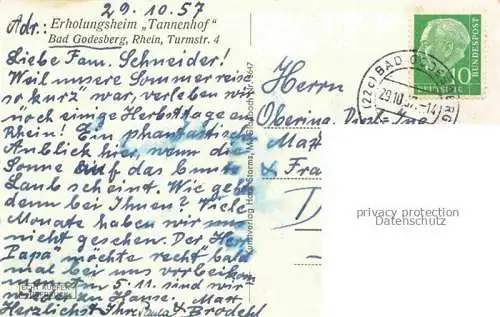 29.10.57
Adr.: Erholungsheim „Tannenhof"
Bad Godesberg, Rhein, Turmstr. 4
Liebe Fam. Schneider!
Weil unsere Sommerreise
"so kurz" war, verleben wir
noch einige Herbsttage am
Rhein! Ein phantastischer
Anblick hier, wenn die
Sonne auf das bunte
Laub scheint. Wie geht
es denn bei Ihnen? Viele
Monate haben wir uns
nicht gesehen. Der Herr
"Papa" möchte recht bald
mal bei uns vorbeikom
men! am 5.11. sind wir
wieder zu Hause.
Herzlichst Ihr Paula & Brodehl
Kunstverlag Hans Storms, M.Gladbach
Herrn
Obering.
& Fra
10
DEUTSCHE
BUNDESPOST
(22c) BAD GODESBERG
29.10.57.-14
privacy protection
Datenschutz